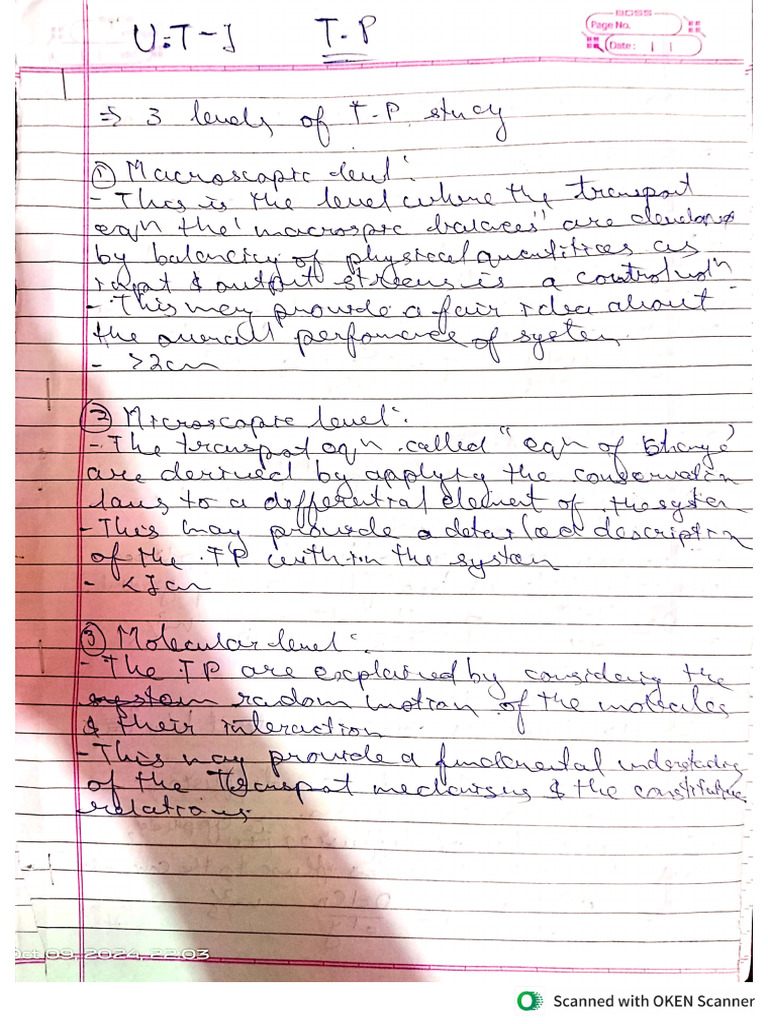 BOSS
Page No.
Date:
U:T-I T.P
⇒ 3 levels of T.P. study
① Macroscopic level:
- This is the level where the transport
eqn the "macrospic balances" are developed
by balancing of physical quantities as
input & output streams is a control voln
- This may provide a fair idea about
the overall performance of system
- >2cm
② Microscopic level:
- The transpot eqn called "eqn of change"
are derived by applying the conservation
laws to a differential element of the system
- This may provide a detailed description
of the TP within the system
- <1cm
③ Molecular level:
- The TP are explained by considering the
system random motion of the molecules
& their interaction
- This may provide a fundamental understanding
of the Transpot mechanisms & the constitutive
relations
Oct 09, 2024, 22:03
Scanned with OKEN Scanner